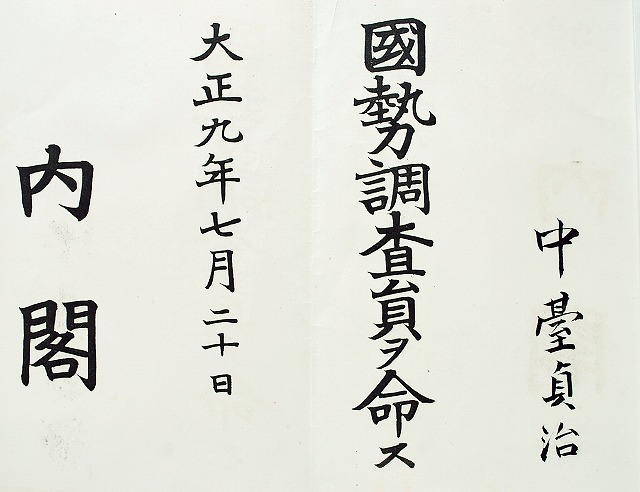 中臺貞治
國勢調査員ヲ命ス
大正九年七月二十日
内閣